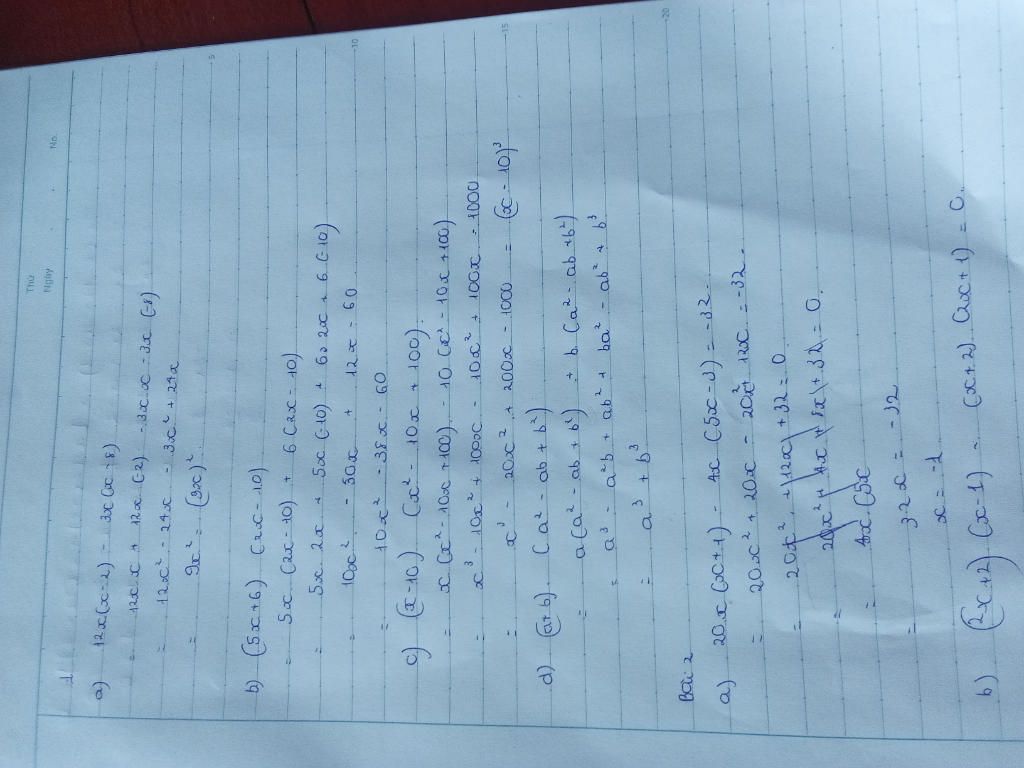 Thứ
Ngày . . No.
1.
a) 12x(x-2) - 3x(x-8)
= 12x x + 12x (-2) - 3x x - 3x (-8)
= 12x² - 24x - 3x² + 24x
= 9x² = (3x)²
b) (5x+6) (2x-10)
= 5x (2x-10) + 6 (2x-10)
= 5x 2x + 5x (-10) + 6 2x + 6 (-10)
= 10x² - 50x + 12x - 60
= 10x² - 38x - 60
c) (x-10) (x² - 10x + 100)
= x (x²-10x+100) - 10 (x²-10x+100)
= x³ - 10x² + 100x - 10x² + 100x - 1000
= x³ - 20x² + 200x - 1000 = (x-10)³
d) (a+b) (a² - ab + b²)
= a (a² - ab + b²) + b (a² - ab + b²)
= a³ - a²b + ab² + ba² - ab² + b³
= a³ + b³
Bài 2
a) 20x (x+1) - 4x (5x-2) = -32
= 20x² + 20x - 20x² + 12x = -32
= 20x² + 12x + 32 = 0
= 20x² + 4x + 8x + 32 = 0
= 4x (5x
= 32x = -32
x = -1
b) (2x+2) (x-1) - (x+2) (2x+1) = 0
5
10
15
20